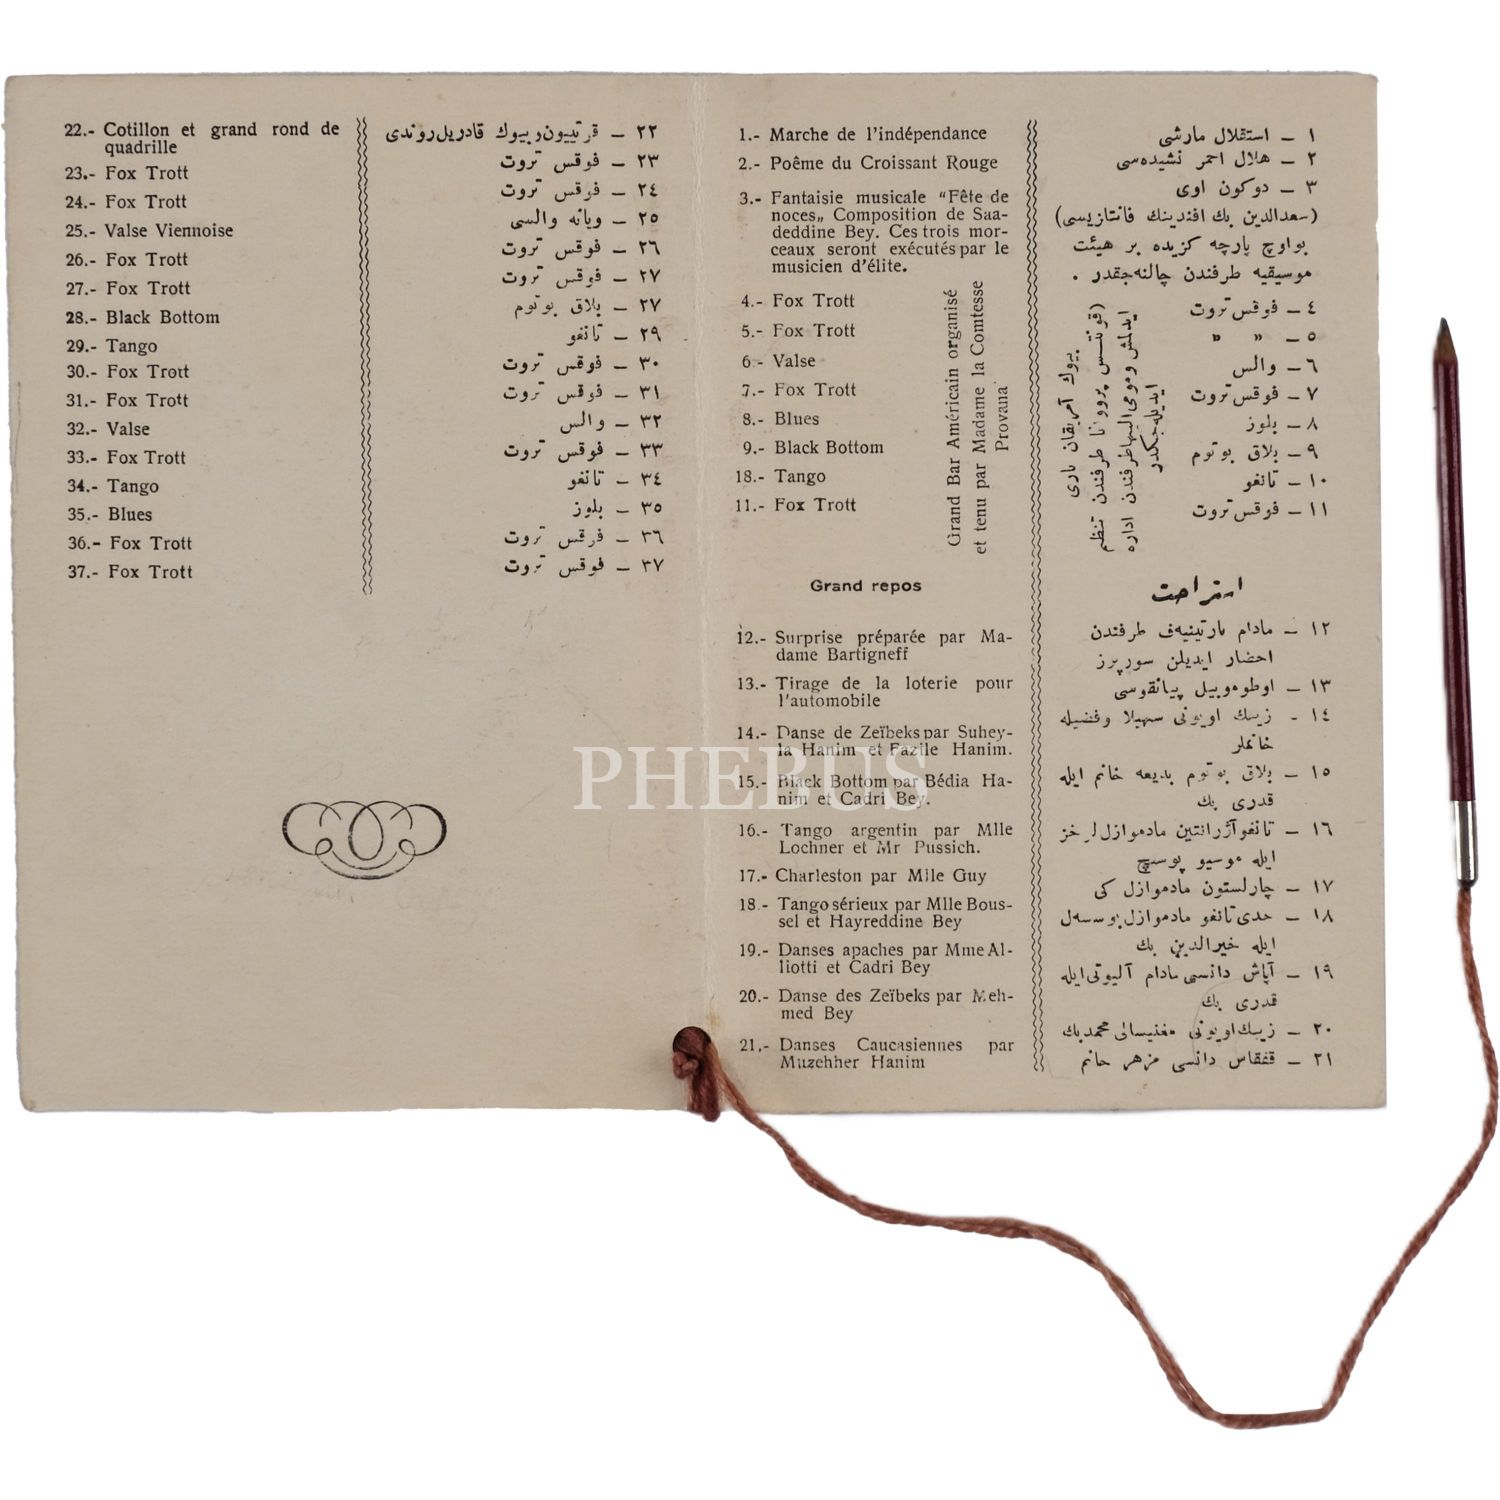 22.- Cotillon et grand rond de
quadrille
23.- Fox Trott
24.- Fox Trott
25.- Valse Viennoise
26.- Fox Trott
27.- Fox Trott
28.- Black Bottom
29.- Tango
30.- Fox Trott
31.- Fox Trott
32.- Valse
33.- Fox Trott
34.- Tango
35.- Blues
36.- Fox Trott
37.- Fox Trott
٢٢ – قرتییون و بیوك قادریل روندی
٢٣ – فوقس تروت
٢٤ – فوقس تروت
٢٥ – ویانه والسی
٢٦ – فوقس تروت
٢٧ – فوقس تروت
٢٧ – بلاق بوتوم
٢٩ – تانغو
٣٠ – فوقس تروت
٣١ – فوقس تروت
٣٢ – والس
٣٣ – فوقس تروت
٣٤ – تانغو
٣٥ – بلوز
٣٦ – فرقس تروت
٣٧ – فوقس تروت
1.- Marche de l'indépendance
2.- Poême du Croissant Rouge
3.- Fantaisie musicale “Fête de
noces„ Composition de Saa-
deddine Bey. Ces trois mor-
ceaux seront exécutés par le
musicien d'élite.
4.- Fox Trott
5.- Fox Trott
6 - Valse
7.- Fox Trott
8.- Blues
9.- Black Bottom
18.- Tango
11.- Fox Trott
Grand Bar Américain organisé
et tenu par Madame la Comtesse
Provana
Grand repos
12.- Surprise préparée par Ma-
dame Bartigneff
13.- Tirage de la loterie pour
l'automobile
14.- Danse de Zeïbeks par Suhey-
la Hanim et Fazile Hanim.
15.- Black Bottom par Bédia Ha-
nim et Cadri Bey.
16.- Tango argentin par Mlle
Lochner et Mr Pussich.
17.- Charleston par Mlle Guy
18.- Tango sérieux par Mlle Bous-
sel et Hayreddine Bey
19.- Danses apaches par Mme Al-
liotti et Cadri Bey
20.- Danse des Zeïbeks par Meh-
med Bey
21,- Danses Caucasiennes par
Muzehher Hanim
١ – استقلال مارشی
٢ – هلال احمر نشیده‌سی
٣ – دوكون اوی
(سعدالدین بك افندینك فانتازیسی)
بو اوچ پارچه كزیده بر هیئت
موسیقیه طرفندن چالنه‌جقدر .
٤ – فوقس تروت
٥ – » »
٦ – والس
٧ – فوقس تروت
٨ – بلوز
٩ – بلاق بوتوم
١٠ – تانغو
١١ – فوقس تروت
بیوك آمریقان باری
(قونتس پرووانا طرفندن تنظم
ایدلمش ومومی الیها طرفندن اداره
ایدیله‌جكدر
استراحت
١٢ – مادام بارتینیه‌ف طرفندن
احضار ایدیلن سورپرز
١٣ – اوطوموبیل پیانقوسی
١٤ - زیبك اویونی سهیلا وفضیله
خانملر
١٥ – بلاق بوتوم بدیعه خانم ایله
قدری بك
١٦ – تانغو آژرانتین مادموازل لوخنر
ایله موسیو پوسیچ
١٧ – چارلستون مادموازل كی
١٨ – جدی تانغو مادموازل بوسسه‌ل
ایله خیرالدین بك
١٩ – آپاش دانسی مادام آلیوتی ایله
قدری بك
٢٠ – زیبك اویونی مغنیسالی محمد بك
٢١ – قفقاس دانسی مزهر خانم
PHEBUS